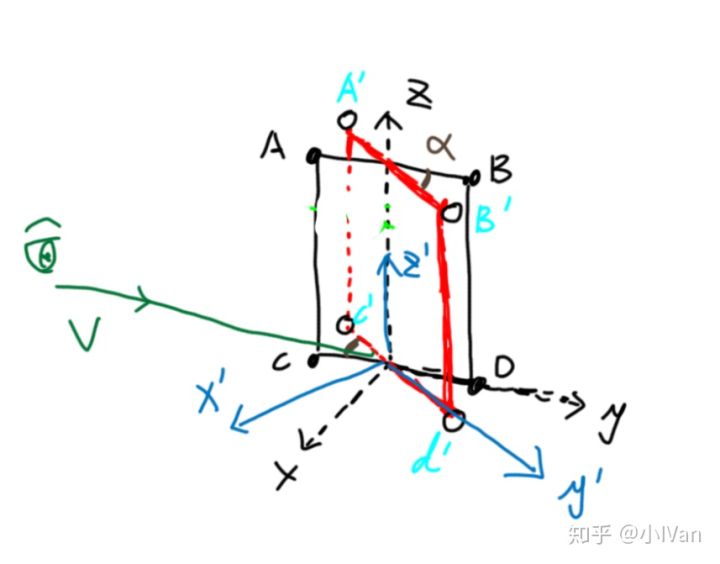 A'
Z
α
A
B
B'
Z'
V
C'
C
D
X'
X
y
d'
y'
知乎 @小IVan